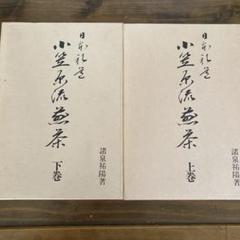 日本礼道
小笠原流煎茶
上巻
諸泉祐陽著
日本礼道
小笠原流煎茶
下巻
諸泉祐陽著